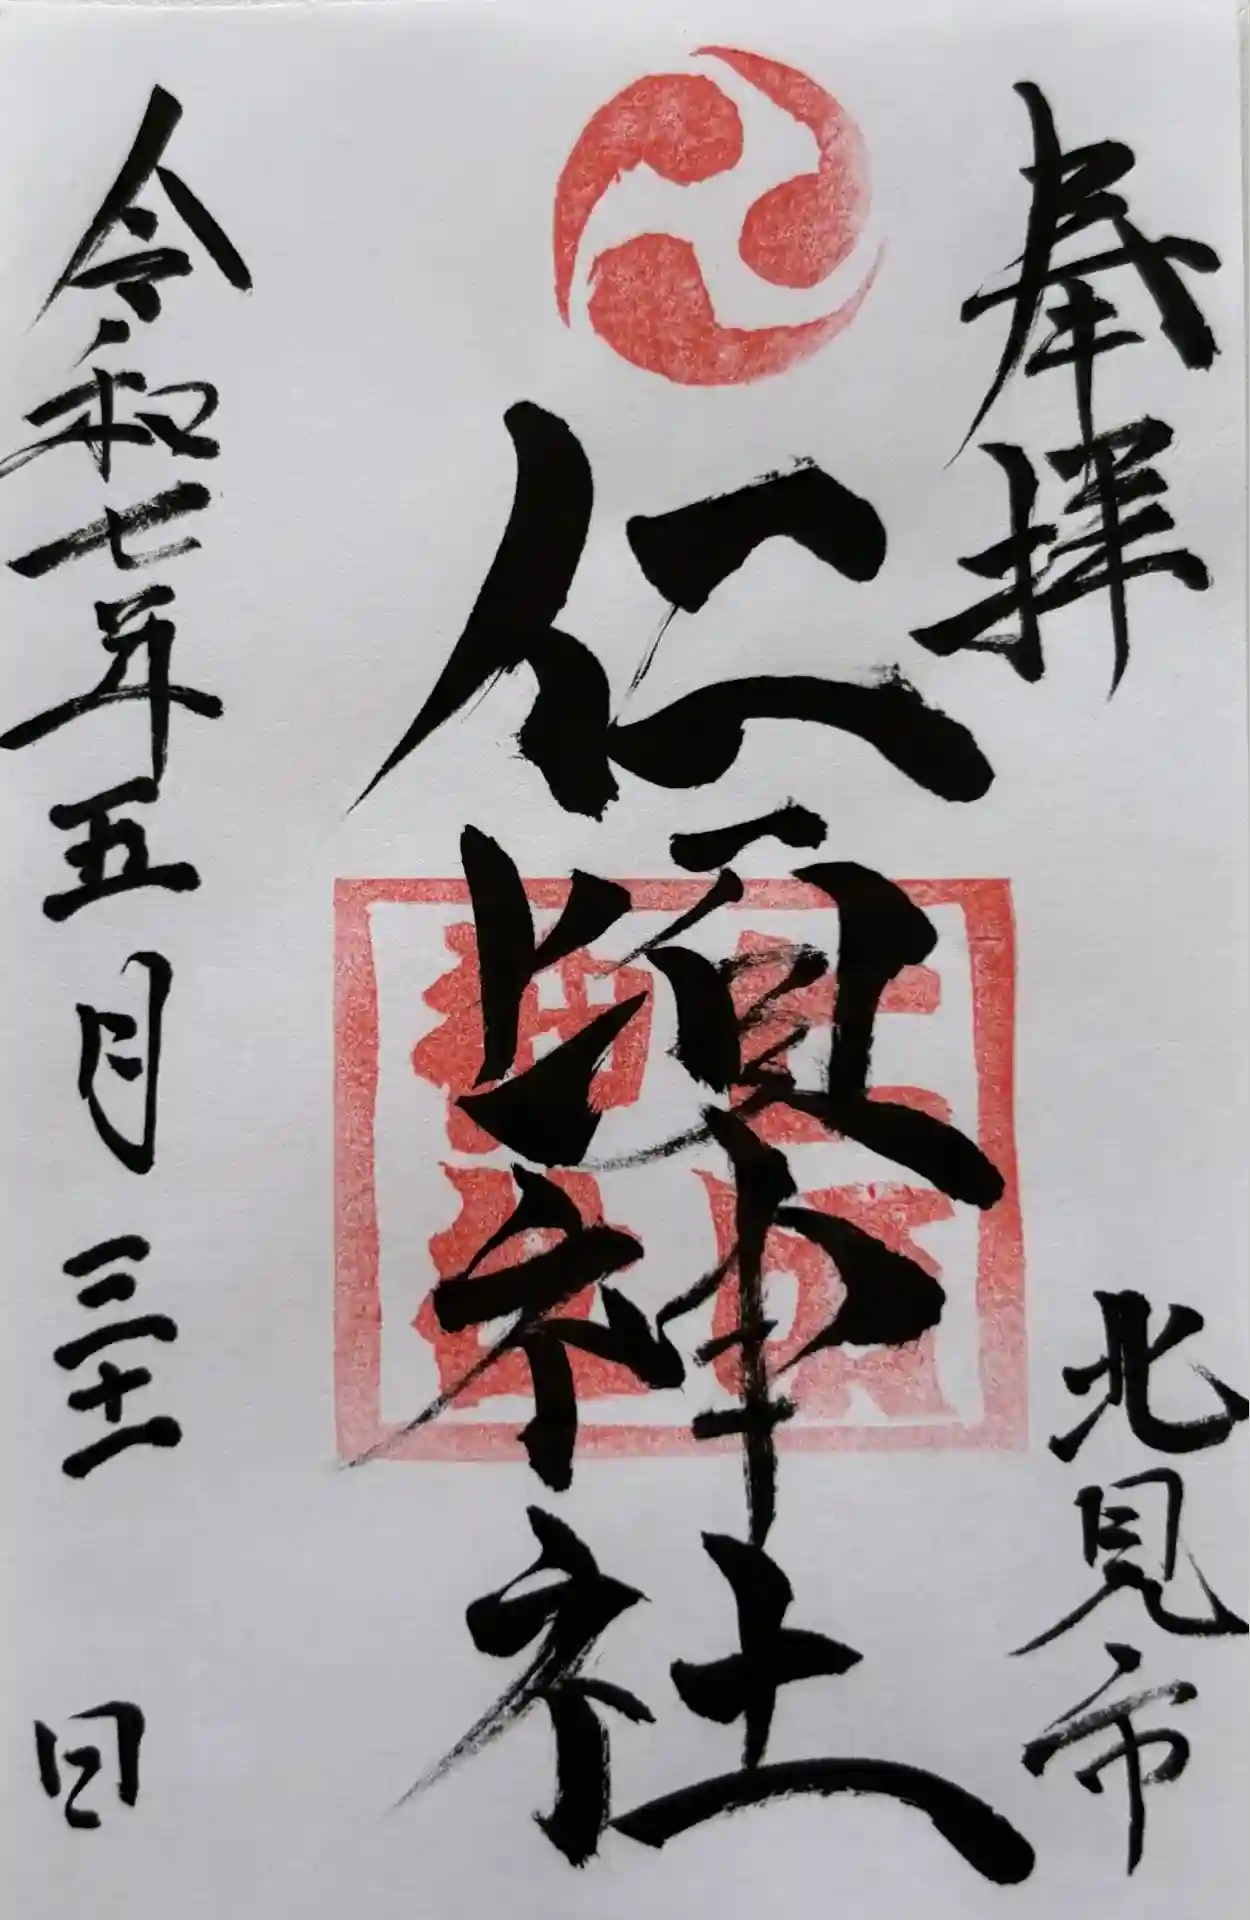 奉拝
北見市
仁頃神社
仁頃
神社
令和七年五月三十一日